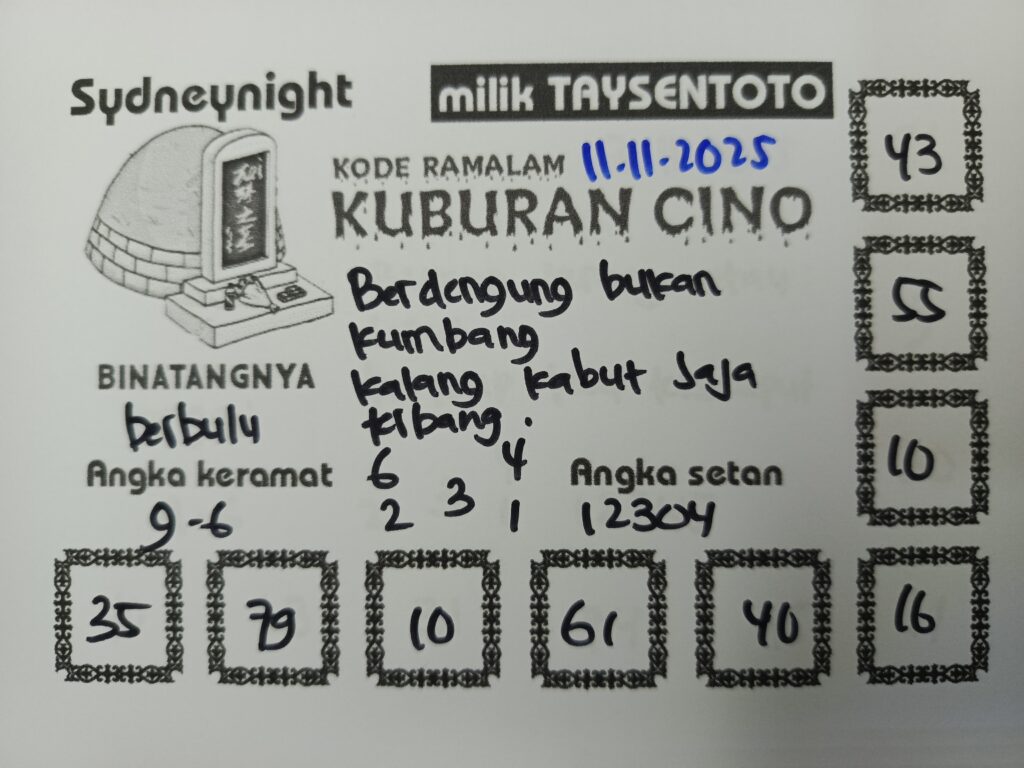 Sydneynight
milik TAYSENTOTO
KODE RAMALAM 11.11.2025
KUBURAN CINO
Berdengung bukan
kumbang
kalang kabut saja
terbang.
BINATANGNYA
berbulu
Angka keramat
9-6
6 4
3
2 1
Angka setan
12304
43
55
10
16
35 79 10 61 40